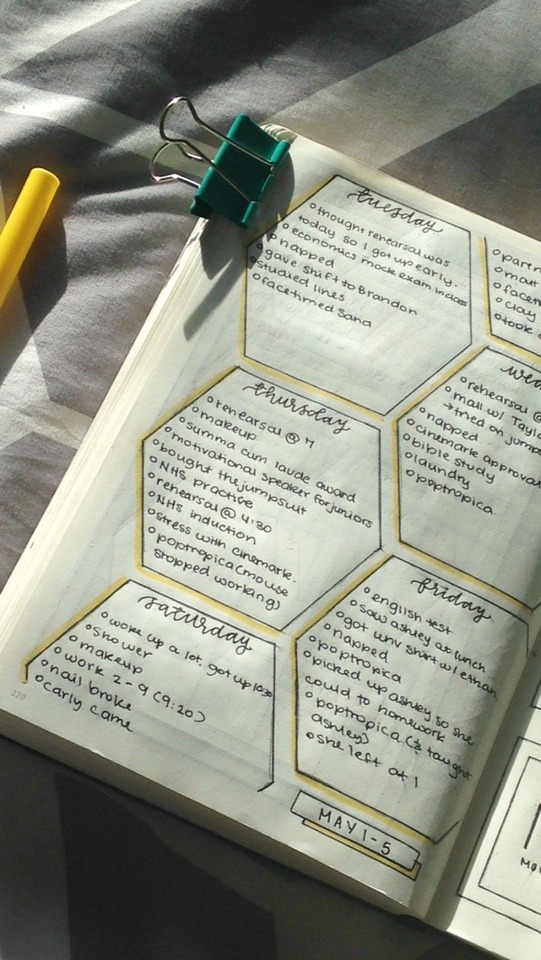 tuesday
○ thought rehearsal was
today so I got up early.
○ economics mock exam in class
○ napped
○ gave shift to Brandon
○ studied lines
○ facetimed Sana
○ part
○ face
○ clay
○ took
wed
○ rehearsal @
○ mall w/ Taylo
↳ tried on jump
○ napped
○ cinemark approval
○ bible study
○ laundry
○ poptropica
thursday
○ rehearsal @ 7
○ makeup
○ summa cum laude award
○ motivational speaker for juniors
○ bought the jumpsuit
○ NHS practive
○ rehearsal @ 4:30
○ NHS induction
○ stress with cinemark.
○ poptropica (mouse
stopped working)
friday
○ english test
○ saw ashley at lunch
○ got univ shirt w/ ethan
○ napped
○ poptropica
○ picked up ashley so she
could to homework
○ poptropica (& taught
ashley)
○ she left at 1
saturday
○ woke up a lot. got up
○ shower
○ makeup
○ work 2-9 (9:20)
○ nail broke
○ carly came
220
MAY 1-5